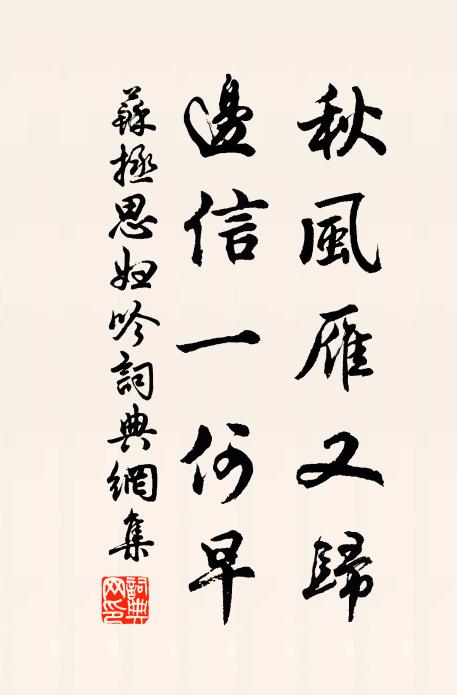 秋風雁又歸
邊信一何早
蘇拯思婦吟詞典網集
詞典网印